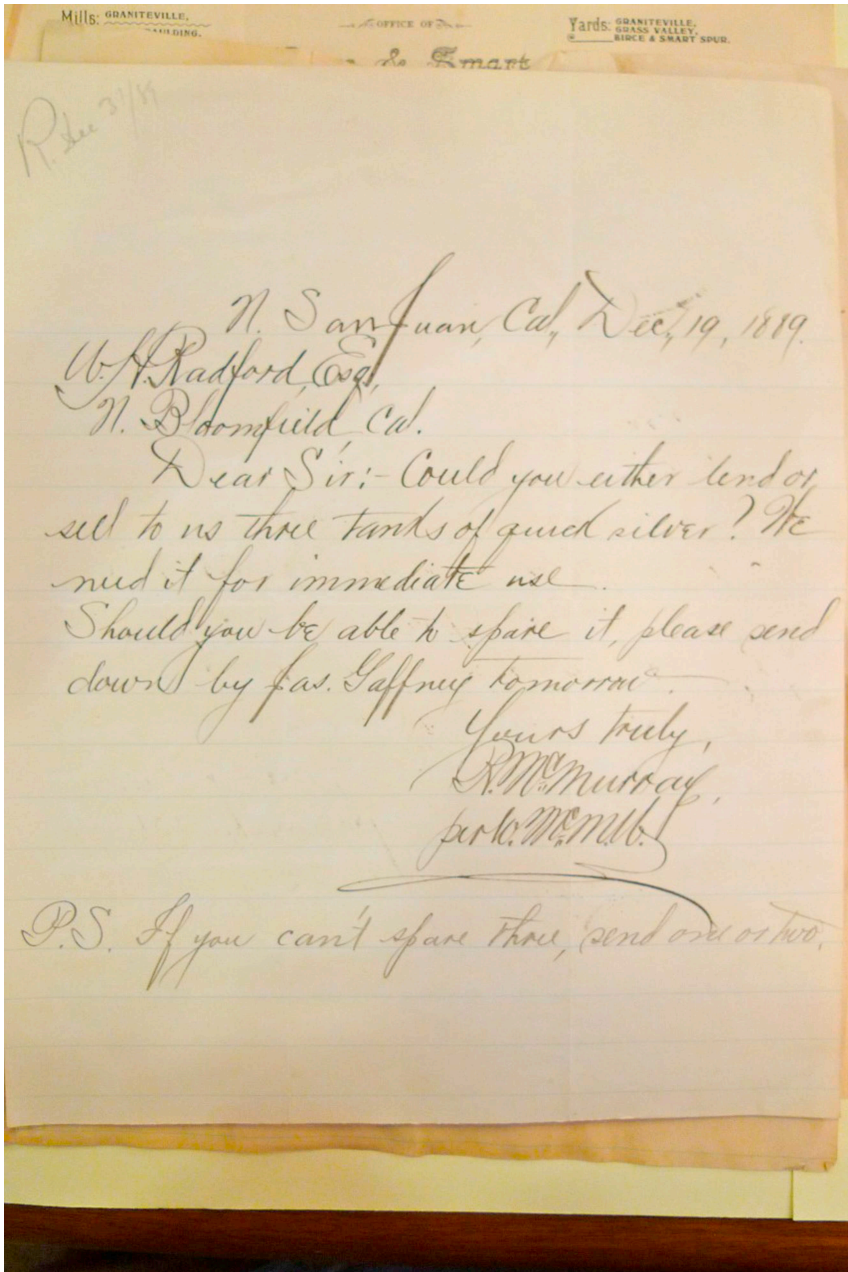 Mills: GRANITEVILLE,
AULDING.
OFFICE OF
& Smart
Yards: GRANITEVILLE,
GRASS VALLEY,
BIRCE & SMART SPUR.
R. Dec 31/89
N. San Juan, Cal., Dec. 19, 1889.
W. H. Radford, Esq.,
N. Bloomfield, Cal.
Dear Sir:- Could you either lend or
sell to us three tanks of quick silver? We
need it for immediate use.
Should you be able to spare it, please send
down by Jas. Gaffney tomorrow.
Yours truly,
R. McMurray,
per
P.S. If you can't spare three, send one or two.